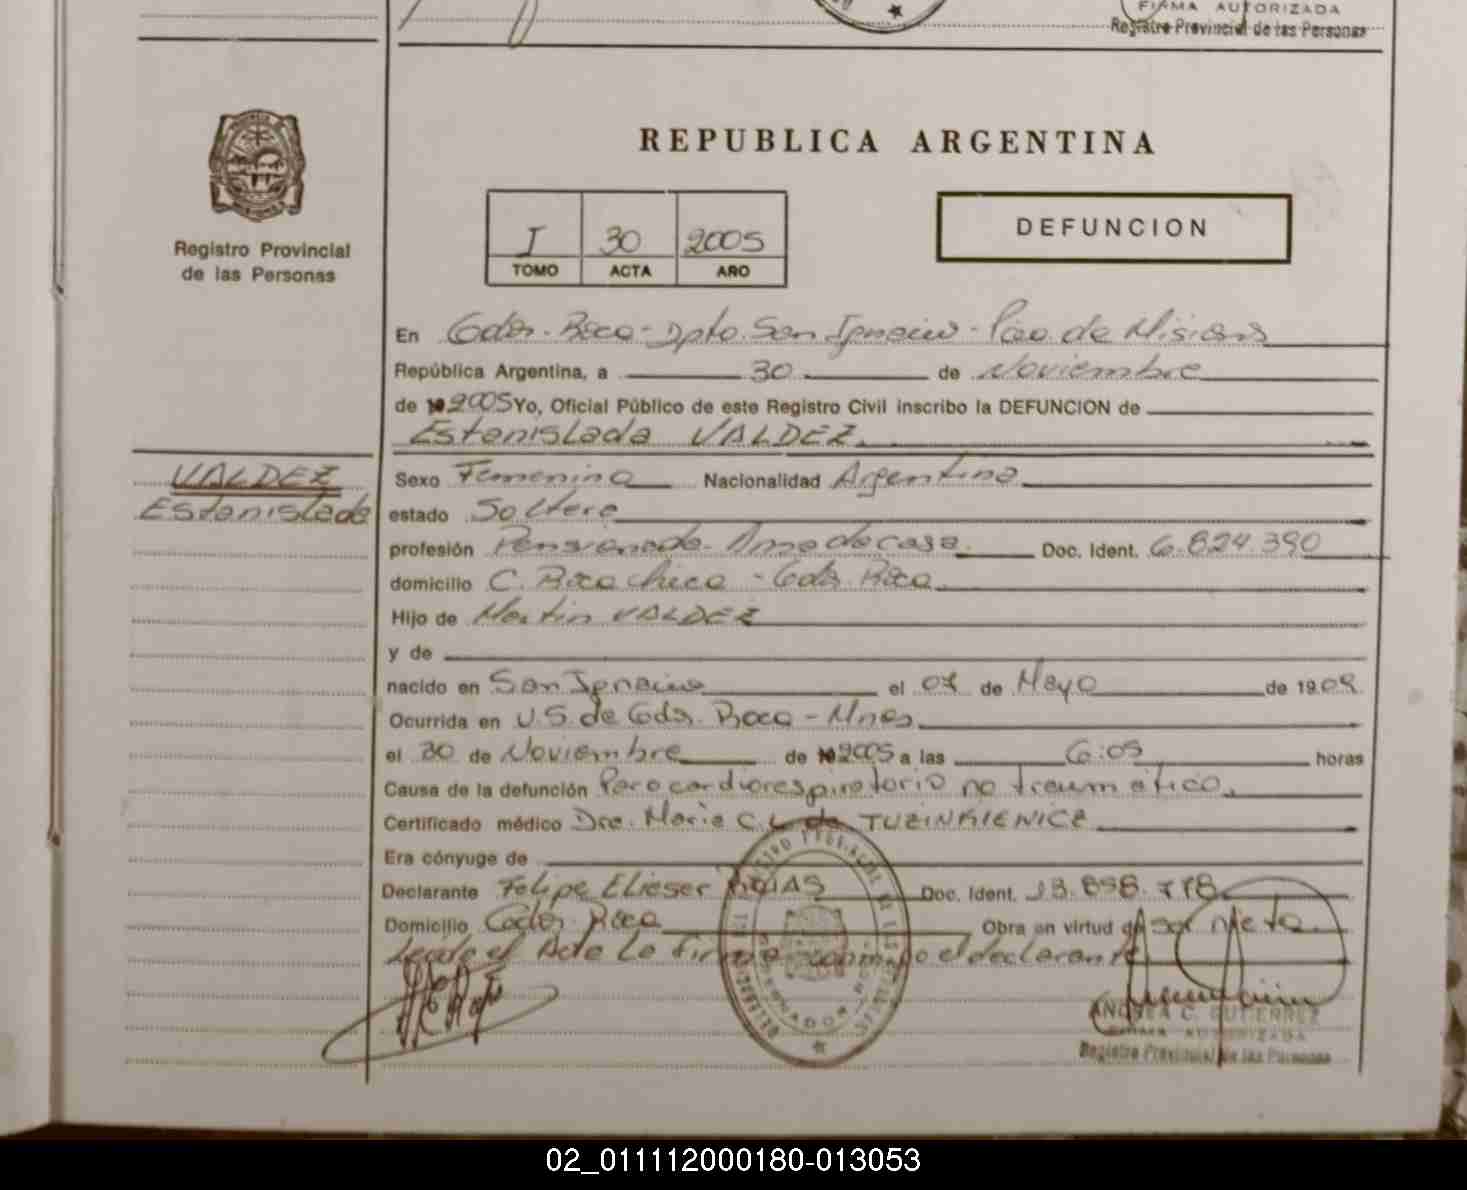 FIRMA AUTORIZADA
Registro Provincial de las Personas
REPUBLICA ARGENTINA
Registro Provincial
de las Personas
I 30 2005
TOMO ACTA AÑO
DEFUNCION
En Gdor. Roca - Dpto. San Ignacio - Pcia. de Misiones
República Argentina, a 30 de Noviembre
de 2005 Yo, Oficial Público de este Registro Civil inscribo la DEFUNCION de
Estanislada VALDEZ.
VALDEZ
Estanislada
Sexo Femenino Nacionalidad Argentina
estado Soltera
profesión Pensionada - Ama de casa. Doc. Ident. 6.824.390
domicilio C. Roca Chica - Gdor. Roca.
Hijo de Martin VALDEZ
y de
nacido en San Ignacio el 07 de Mayo de 1909
Ocurrida en U.S. de Gdor. Roca - Mnes
el 30 de Noviembre de 2005 a las 6:05 horas
Causa de la defunción Paro cardiorespiratorio no traumático.
Certificado médico Dra. Maria C. L. de TUZINKIEWICZ
Era cónyuge de
Declarante Felipe Elieser ROJAS Doc. Ident. 13.898.778
Domicilio Gdor. Roca Obra en virtud de ser nieto.
Leida el Acta La firma conmigo el declarante
ANDREA C. GUTIERREZ
FIRMA AUTORIZADA
Registro Provincial de las Personas
02_011112000180-013053